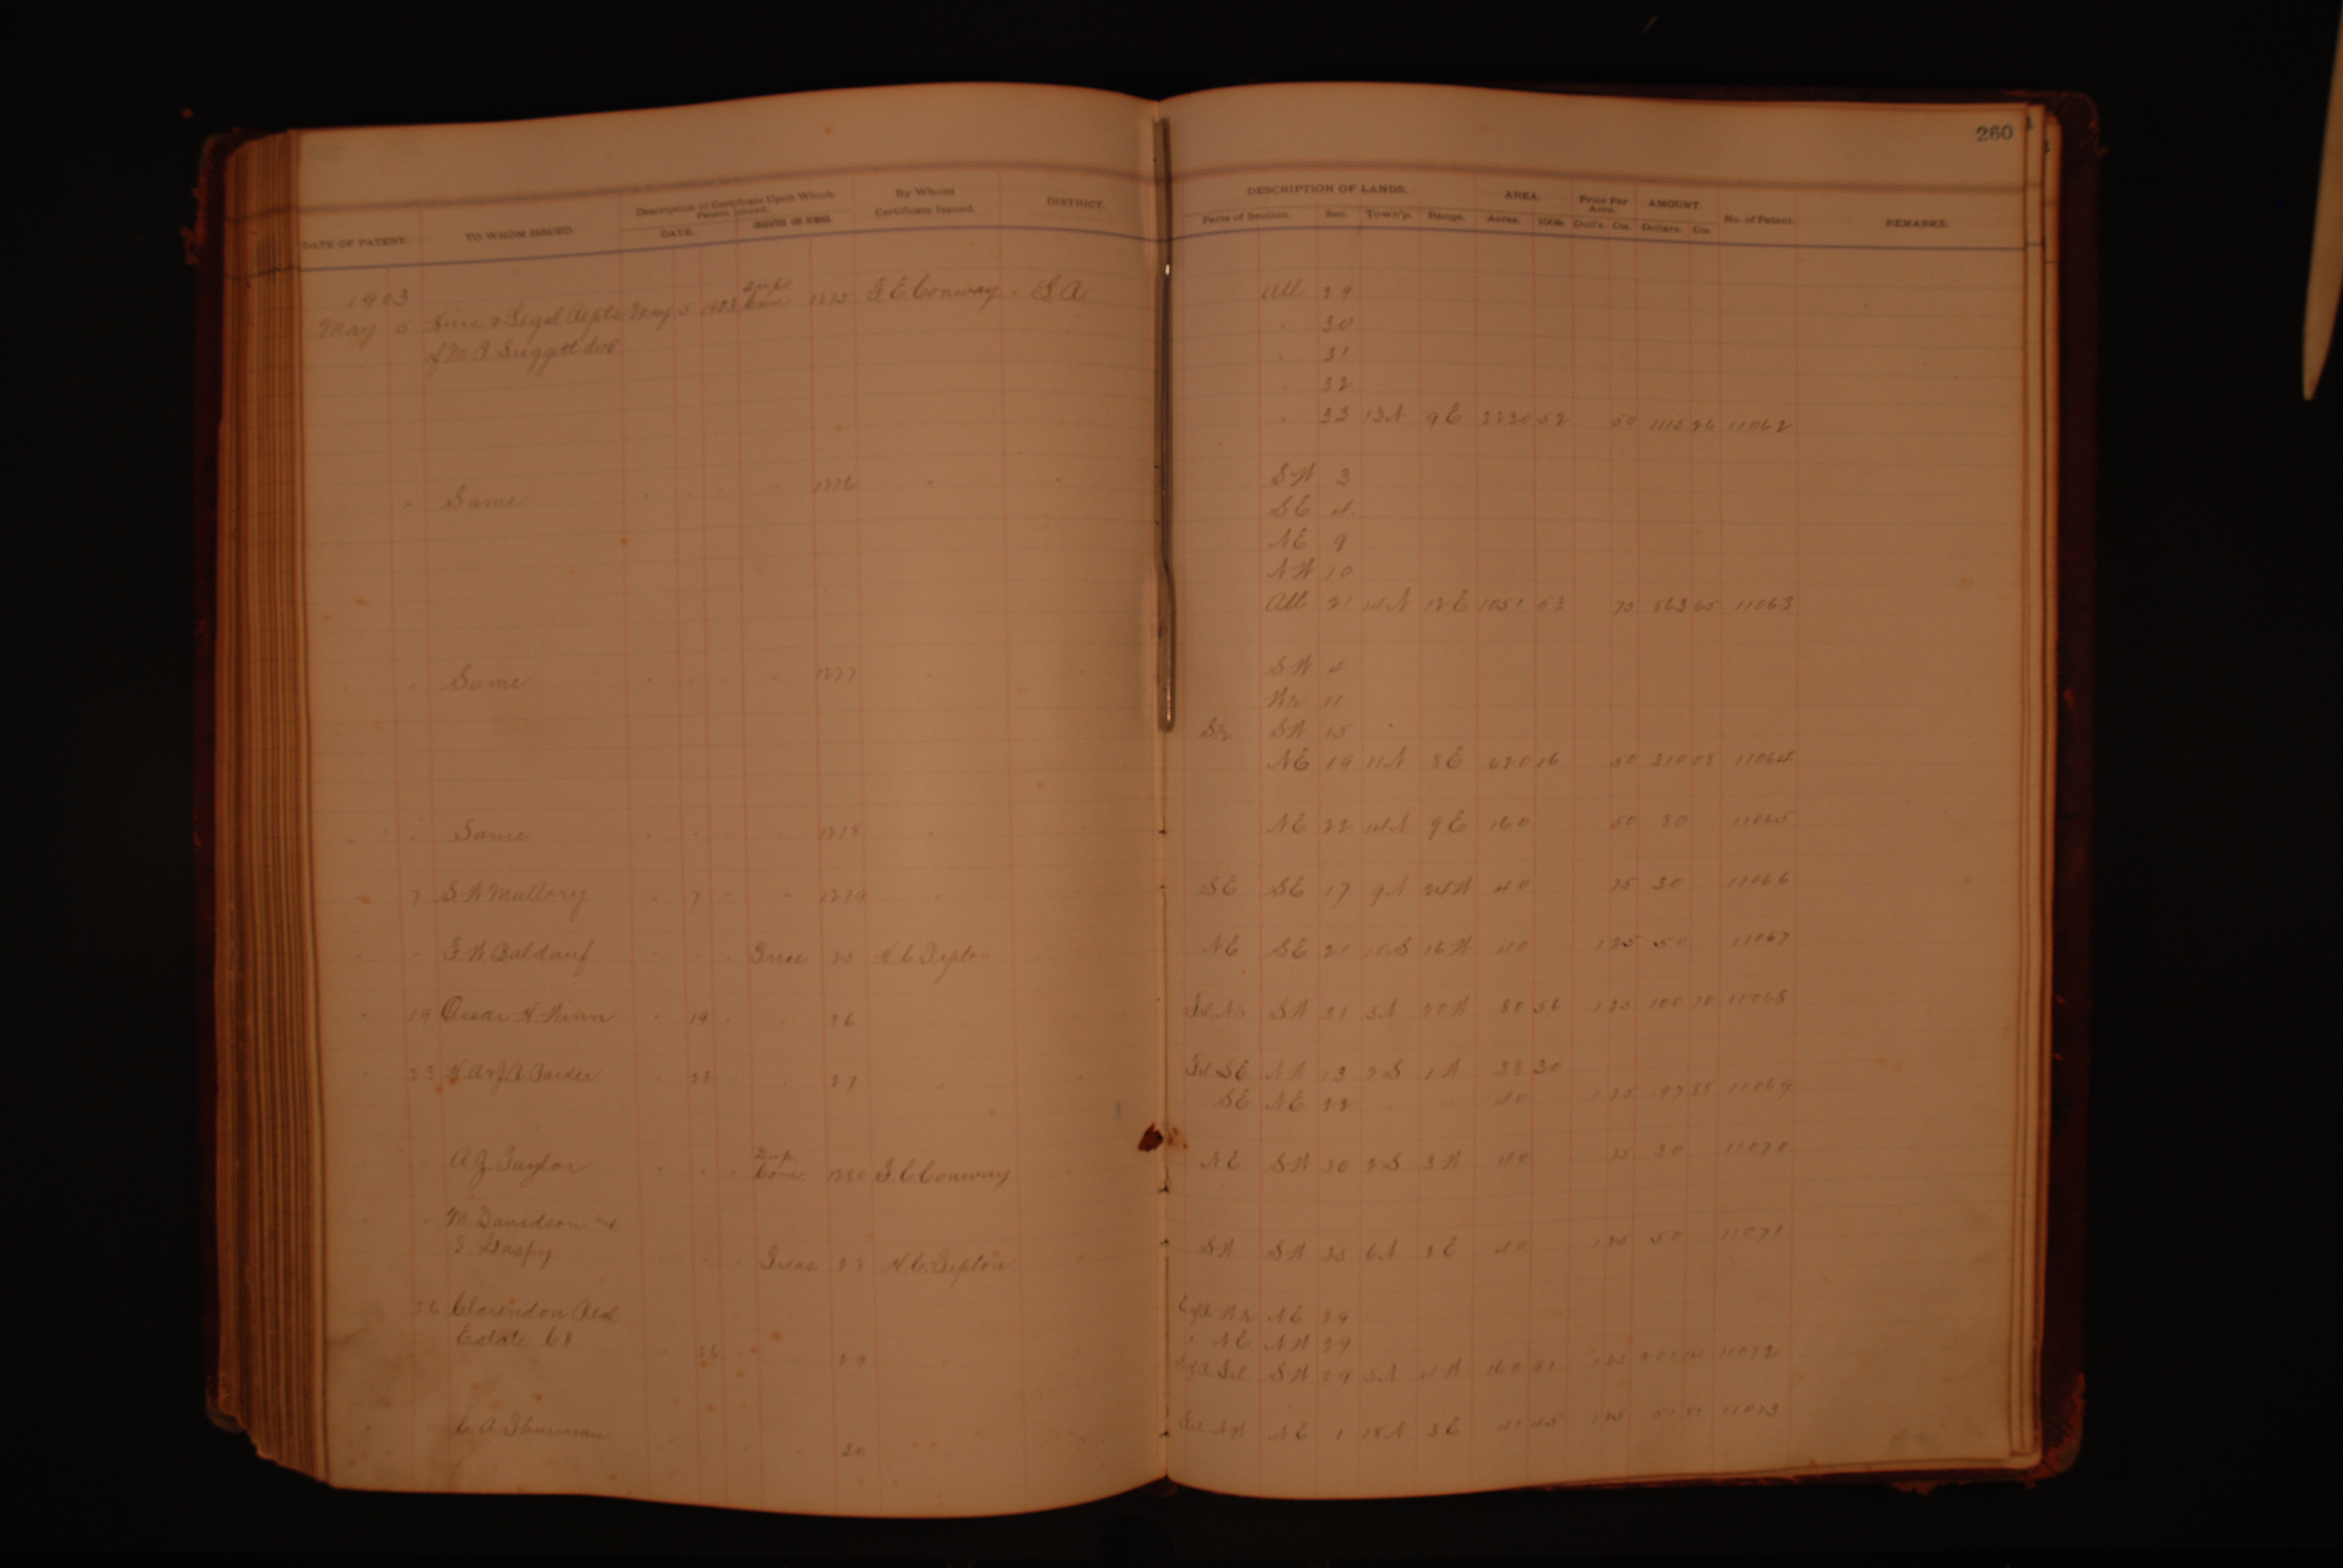 260
DATE OF PATENT. TO WHOM ISSUED. Description of Certificate Upon Which Patent Issued. DATE. By Whom Certificate Issued. DISTRICT. DESCRIPTION OF LANDS. Parts of Section. Sec. Town'p. Range. AREA. Acres. 100s. Price Per Acre. Doll's. Cts. AMOUNT. Dollars. Cts. No. of Patent. REMARKS.
1903
May 5 Heirs & Legal Repts May 5 1903 Dup. Com 1275 F E Conway L.R. All 29
of M. B. Suggett decd " 30
" 31
" 32
" 33 13N 9E 2230 52 50 1115 26 11062
" Same " " " " 1276 " " SW 3
SE 4
NE 9
NW 10
All 21 14N 12E 1051 53 75 863 65 11063
" " Same " " " " 1277 " " SW 4
W½ 11
S½ SW 15
NE 19 11N 8E 620 16 50 310 08 11064
" " Same " " " " 1278 " NE 22 14N 9E 160 50 80 11065
" 7 S. W. Mallory " 7 " " 1279 " " SE SE 17 9N 24W 40 75 30 11066
" " F. W. Baldauf " " " Treas 25 H. C. Tipton " NE SE 21 10S 16W 40 1 25 50 11067
" 19 Oscar H. Winn " 19 " " 26 " " Frl. N½ SW 31 5N 20W 80 56 1 25 100 70 11068
" 23 H. A. & J. A. Barker " 23 " " 27 " " Frl SE NW 13 2S 1W 38 30
SE NE 22 " " 40 1 25 97 88 11069
" " A. J. Taylor " " " Dup. Com. 1280 F. E. Conway " NE SW 30 2S 3W 40 75 30 11070
" " M. Davidson and
J. Haspy " " " Treas 28 H. C. Tipton " SW SW 35 6N 2E 40 1 25 50 11071
" 26 Clarendon Real W½ NE 29
Estate Co " 26 " 29 " " NE NW 29
Frl SW 29 3N 4W 160 91 1 25 11072
" " C. A. Thurman " " " " 30 " " Frl. NW NE 1 18N 3E 41 45 1 25 51 81 11073